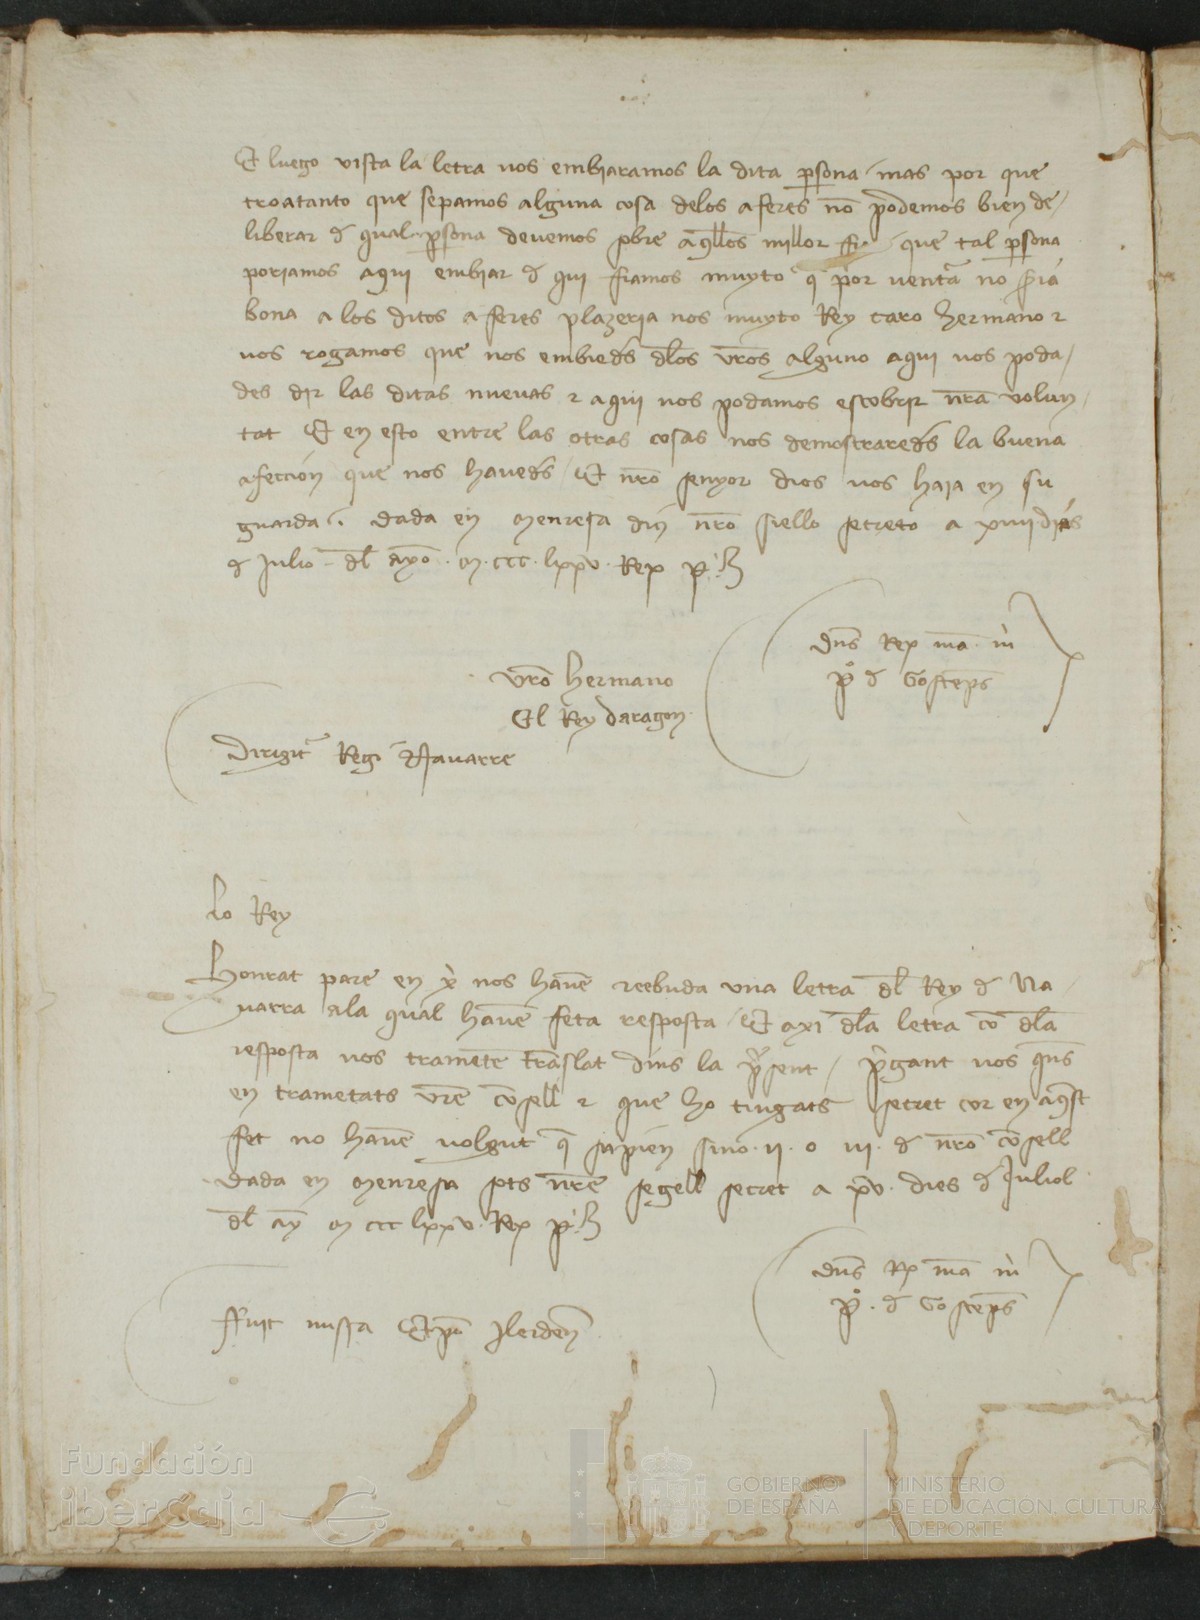 Et luego vista la letra vos embiaramos la dita psona / mas por que
troatanto que sepamos alguna cosa delos aferes no podemos bien de /
liberar d qual psona devemos sbre aqllos millor / que tal psona
poriamos aqui embiar d qui fiamos muyto q por ventra no sia
bona a los ditos aferes plazeria nos muyto Rey caro hermano z
vos rogamos que nos embieds dlos vros alguno aqui vos poda /
des dir las ditas nuevas z aqui nos podamos escobrir nra volun /
tat Et en esto entre las otras cosas nos demostrareds la buena
afeccion que nos haveds / Et nro senyor dios vos haia en su
guarda . dada en Menresa dius nro siello secreto a xiiii dias
d Julio . dl anyo . M . ccc . lxxv . Rex p .
dns Rex ma m
po d Gostemps
Vro hermano
El Rey daragon
Dirigitr Regi Navarre
Lo Rey
Honrat pare en x nos havem reebuda una letra dl Rey d Na /
varra ala qual havem feta resposta / Et axi dla letra co dla
resposta vos trametem translat dins la psent / pregant vos qns
en trametats vre consell z que ho tingats secret cor en aqst
fet no havem volgut q sapien sino . ii . o iii . d nro consell
Dada en Menresa sots nre segell secret a xv . dies d Juliol
dl any M ccc lxxv . Rex p .
dns Rx ma m
po . d Gostemps
Ffuit missa Epo Ilerden
Fundación
iberCaja
GOBIERNO
DE ESPAÑA
MINISTERIO
DE EDUCACIÓN, CULTURA
Y DEPORTE